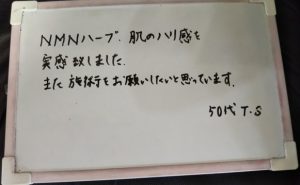 NMNハーブ、肌のハリ感を
実感致しました.
また施術をお願いしたいと思っています.
50代 T.S